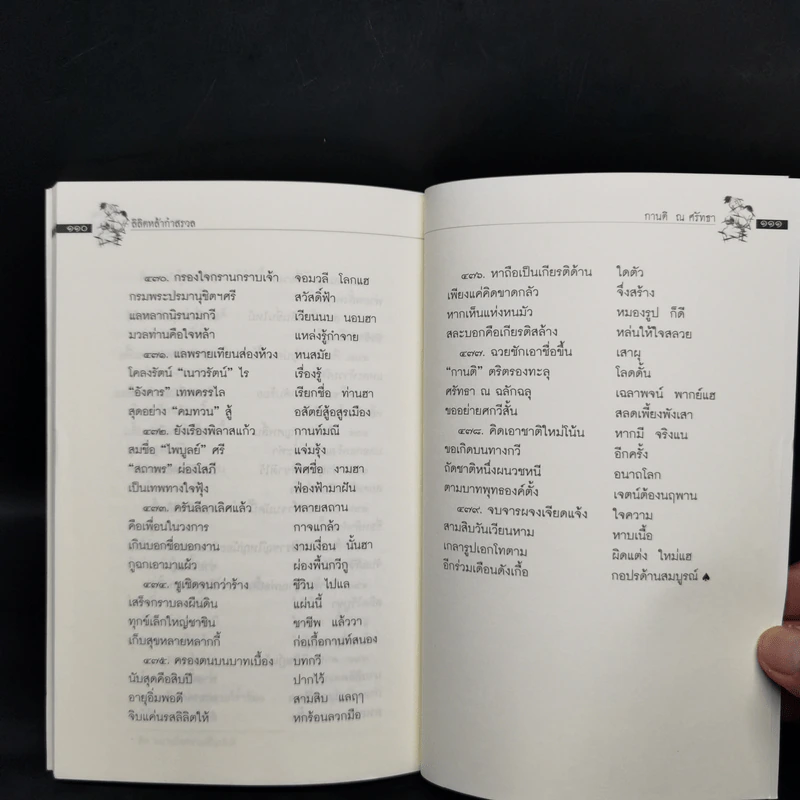 ๑๑๐ ลิลิตหล้ากำสรวล
๔๗๐. กรองใจกรานกราบเจ้า จอมวลี โลกแฮ
กรมพระปรมานุชิตฯศรี สวัสดิ์ฟ้า
แลหลากนิรนามกวี เวียนนบ นอบฮา
มวลท่านคือใจหล้า แหล่งรู้กำจาย
๔๗๑. แลพรายเทียนส่องห้วง หนสมัย
โคลงรัตน์ "เนาวรัตน์" ไร เรื่องรู้
"อังคาร" เทพครรไล เรียกชื่อ ท่านฮา
สุดอย่าง "คมทวน" สู้ อสัตย์สู้อสูรเมือง
๔๗๒. ยังเรืองพิลาสแก้ว กานท์มณี
สมชื่อ "ไพบูลย์" ศรี แจ่มรุ้ง
"สถาพร" ผ่องโสภี พิศชื่อ งามฮา
เป็นเทพทางใจฟุ้ง ฟ่องฟ้ามาฝัน
๔๗๓. ครันลีลาเลิศแล้ว หลายสถาน
คือเพื่อนในวงการ กาจแกล้ว
เกินบอกชื่อบอกงาน งามเงื่อน นั้นฮา
กูฉกเอามาแผ้ว ผ่องพื้นกวีกู
๔๗๔. ชูเชิดจนกว่าร้าง ชีวิน ไปแล
เสร็จกราบลงผืนดิน แผ่นนี้
ทุกข์เล็กใหญ่ชาชิน ชาชีพ แล้ววา
เก็บสุขหลายหลากกี้ ก่อเกื้อกานท์สนอง
๔๗๕. ครองตนบนบาทเบื้อง บทกวี
นับสุดคือสิบปี ปากไว้
อายุอิ่มพอดี สามสิบ แลฤๅ
จิบแค่นรสลิลิตให้ หกร้อนลวกมือ
กานติ ณ ศรัทธา ๑๑๑
๔๗๖. หาถือเป็นเกียรติด้าน ใดตัว
เพียงแค่คิดขาดกลัว จึ่งสร้าง
หากเห็นแห่งหนมัว หมองรูป ก็ดี
สละบอกคือเกียรติสล้าง หล่นให้ใจสลวย
๔๗๗. ฉวยชักเอาชื่อขึ้น เสาผุ
"กานติ" ตริตรองทะลุ โลดดั้น
ศรัทธา ณ ฉลักฉลุ เฉลาพจน์ พากย์แฮ
ขออย่ายศกวีสั้น สลดเพี้ยงพังเสา
๔๗๘. คิดเอาชาติใหม่โน้น หากมี จริงแน
ขอเกิดบนทางกวี อีกครั้ง
ถัดชาติหนึ่งผนวชหนี อนาถโลก
ตามบาทพุทธองค์ตั้ง เจตน์ต้องนฤพาน
๔๗๙. จบจารผจงเจียดแจ้ง ใจความ
สามสิบวันเวียนหาม หาบเนื้อ
เกลารูปเอกโทตาม ผิดแต่ง ใหม่แฮ
อีกร่วมเดือนดังเกื้อ กอปรด้านสมบูรณ์ ♠